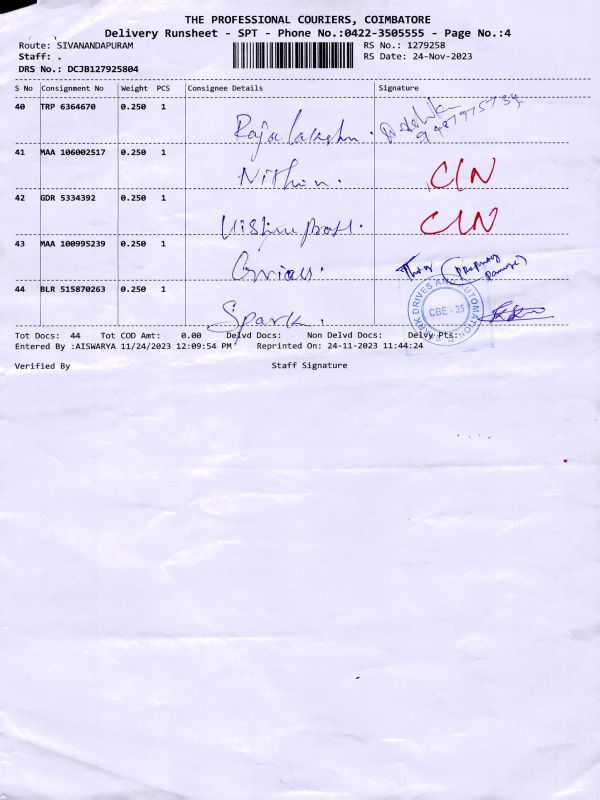 THE PROFESSIONAL COURIERS, COIMBATORE
Delivery Runsheet - SPT - Phone No.:0422-3505555 - Page No.:4
Route: SIVANANDAPURAM RS No.: 1279258
Staff: . RS Date: 24-Nov-2023
DRS No.: DCJB127925804
S No Consignment No Weight PCS Consignee Details Signature
40 TRP 6364670 0.250 1
Rajalakshm.
9487975734
41 MAA 106002517 0.250 1
Nithin. CIN
42 GDR 5334392 0.250 1
CIN
43 MAA 100995239 0.250 1
44 BLR 515870263 0.250 1
Spark.
DRIVES AND AUTOMATION
CBE - 35
Tot Docs: 44 Tot COD Amt: 0.00 Delvd Docs: Non Delvd Docs: Delvy Pts:
Entered By :AISWARYA 11/24/2023 12:09:54 PM Reprinted On: 24-11-2023 11:44:24
Verified By Staff Signature